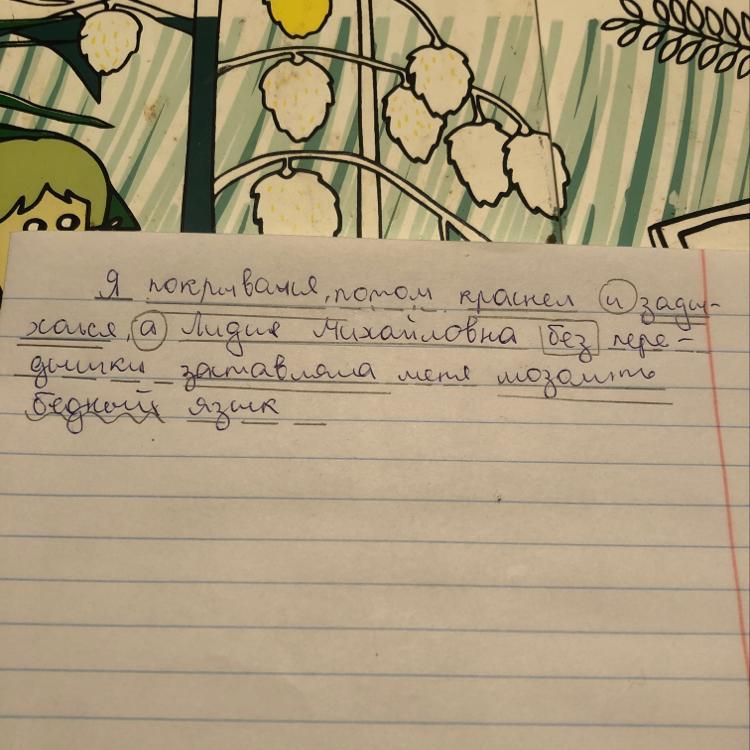 Я покрывался, потом краснел и зады-
хался, а Лидия Михайловна без пере-
дышки заставляла меня мозолить
бедный язык